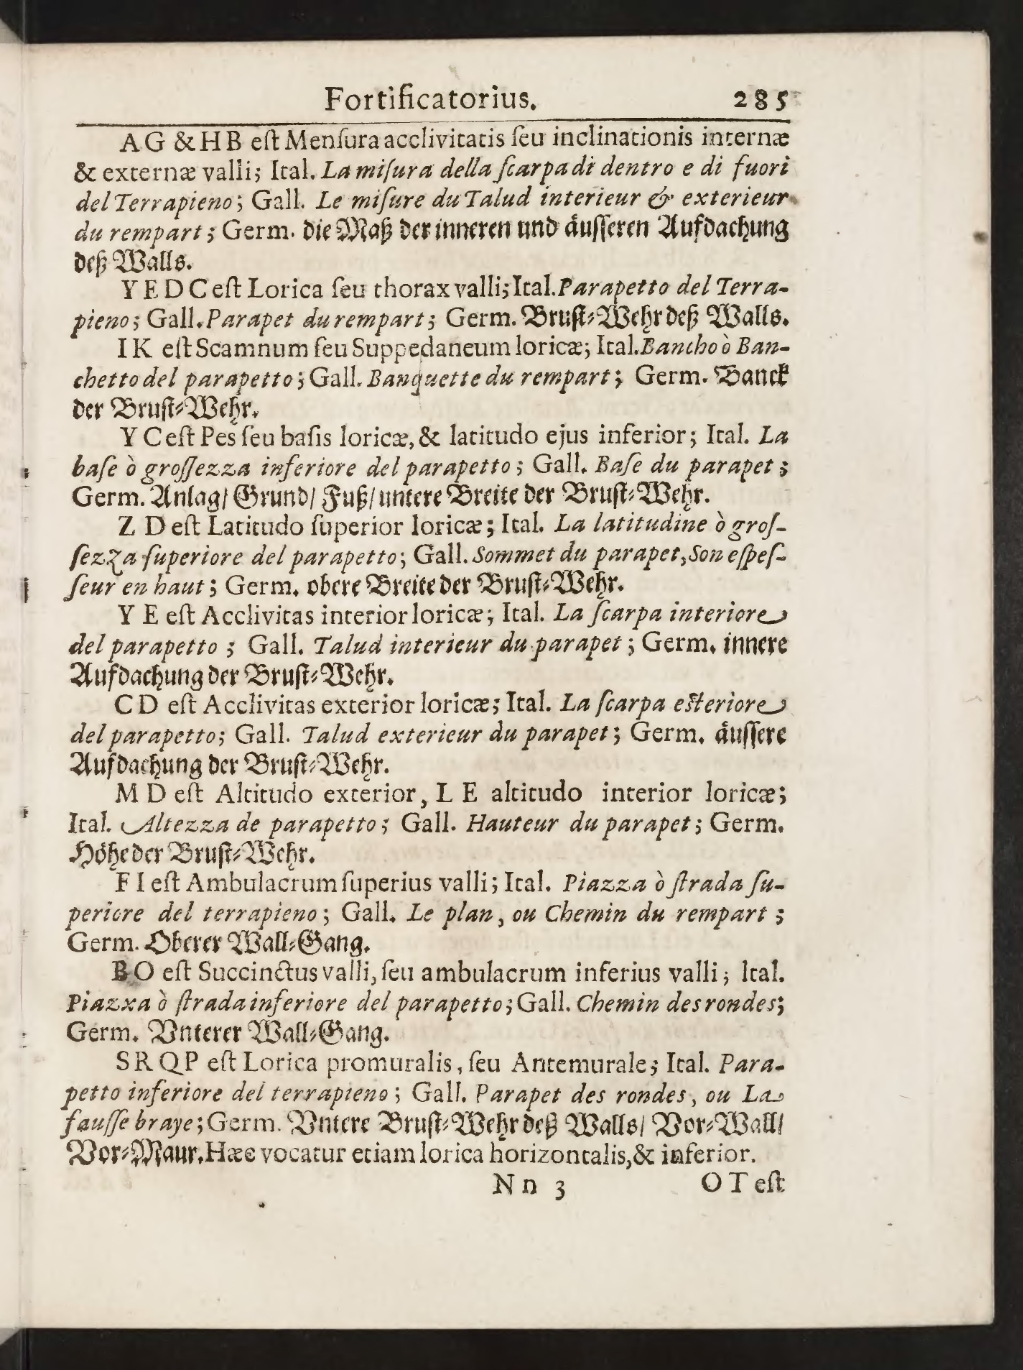 Fortificatorius. 285
AG & HB eſt Menſura acclivitatis ſeu inclinationis internæ
& externæ valli; Ital. La miſura della ſcarpa di dentro e di fuori
del Terrapieno; Gall. Le miſure du Talud interieur & exterieur
du rempart; Germ. die Maß der inneren und äuſſeren Aufdachung
deß Walls.
Y E D C eſt Lorica ſeu thorax valli; Ital. Parapetto del Terra-
pieno; Gall. Parapet du rempart; Germ. Bruſt-Wehr deß Walls.
I K eſt Scamnum ſeu Suppedaneum loricæ; Ital. Bancho ò Ban-
chetto del parapetto; Gall. Banquette du rempart; Germ. Banck
der Bruſt-Wehr.
Y C eſt Pes ſeu baſis loricæ, & latitudo ejus inferior; Ital. La
baſe ò groſſezza inferiore del parapetto; Gall. Baſe du parapet;
Germ. Anlag/ Grund/ Fuß/ untere Breite der Bruſt-Wehr.
Z D eſt Latitudo ſuperior loricæ; Ital. La latitudine ò groſ-
ſezza ſuperiore del parapetto; Gall. Sommet du parapet, Son eſpeſ-
ſeur en haut; Germ. obere Breite der Bruſt-Wehr.
Y E eſt Acclivitas interior loricæ; Ital. La ſcarpa interiore
del parapetto; Gall. Talud interieur du parapet; Germ. innere
Aufdachung der Bruſt-Wehr.
C D eſt Acclivitas exterior loricæ; Ital. La ſcarpa eſteriore
del parapetto; Gall. Talud exterieur du parapet; Germ. äuſſere
Aufdachung der Bruſt-Wehr.
M D eſt Altitudo exterior, L E altitudo interior loricæ;
Ital. Altezza de parapetto; Gall. Hauteur du parapet; Germ.
Höhe der Bruſt-Wehr.
F I eſt Ambulacrum ſuperius valli; Ital. Piazza ò ſtrada ſu-
periore del terrapieno; Gall. Le plan, ou Chemin du rempart;
Germ. Oberer Wall-Gang.
BO eſt Succinctus valli, ſeu ambulacrum inferius valli; Ital.
Piazxa ò ſtrada inferiore del parapetto; Gall. Chemin des rondes;
Germ. Vnterer Wall-Gang.
S R Q P eſt Lorica promuralis, ſeu Antemurale; Ital. Para-
petto inferiore del terrapieno; Gall. Parapet des rondes, ou La
fauſſe braye; Germ. Vntere Bruſt-Wehr deß Walls/ Vor-Wall/
Vor-Maur. Hæc vocatur etiam lorica horizontalis, & inferior.
N n 3 O T eſt